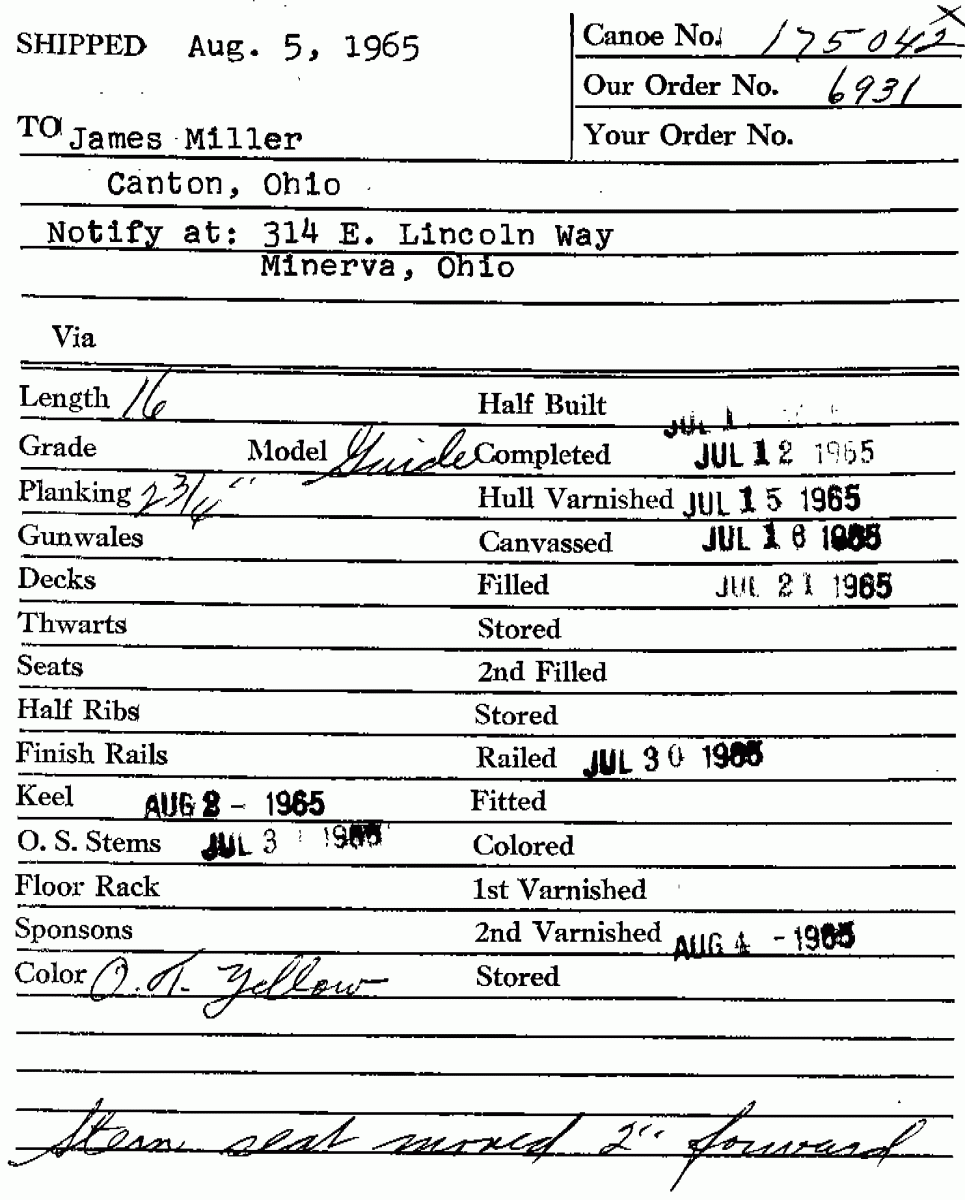 SHIPPED Aug. 5, 1965
Canoe No. 175042 X
Our Order No. 6931
TO James Miller
Your Order No.
Canton, Ohio
Notify at: 314 E. Lincoln Way
Minerva, Ohio
Via
Length 16
Half Built JUL 1
Grade
Model Guide
Completed JUL 12 1965
Planking 2 3/4"
Hull Varnished JUL 15 1965
Gunwales
Canvassed JUL 16 1965
Decks
Filled JUL 21 1965
Thwarts
Stored
Seats
2nd Filled
Half Ribs
Stored
Finish Rails
Railed JUL 30 1965
Keel AUG 2 - 1965
Fitted
O. S. Stems JUL 3 1965
Colored
Floor Rack
1st Varnished
Sponsons
2nd Varnished AUG 4 - 1965
Color O.T. Yellow
Stored
Stern seat moved 2" forward